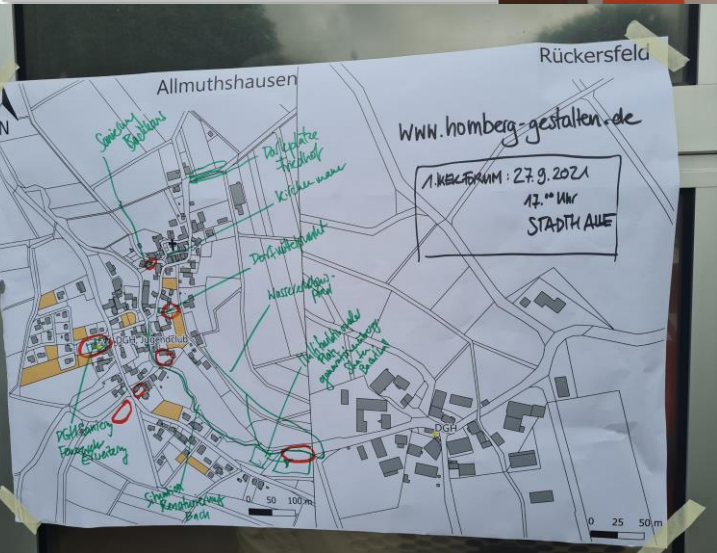 Allmuthshausen
Rückersfeld
N
www.homberg-gestalten.de
1. KECFORUM: 27.9.2021
17.00 Uhr
STADTHALLE
Sanierung
Backhaus
Parkplätze
Friedhof
Kirchenmauer
Dorfmittelpunkt
DGH, Jugendclub
DGH
Feuerwehr
Erweiterung
Renaturierung
Bach
DGH
0 50 100 m
0 25 50 m